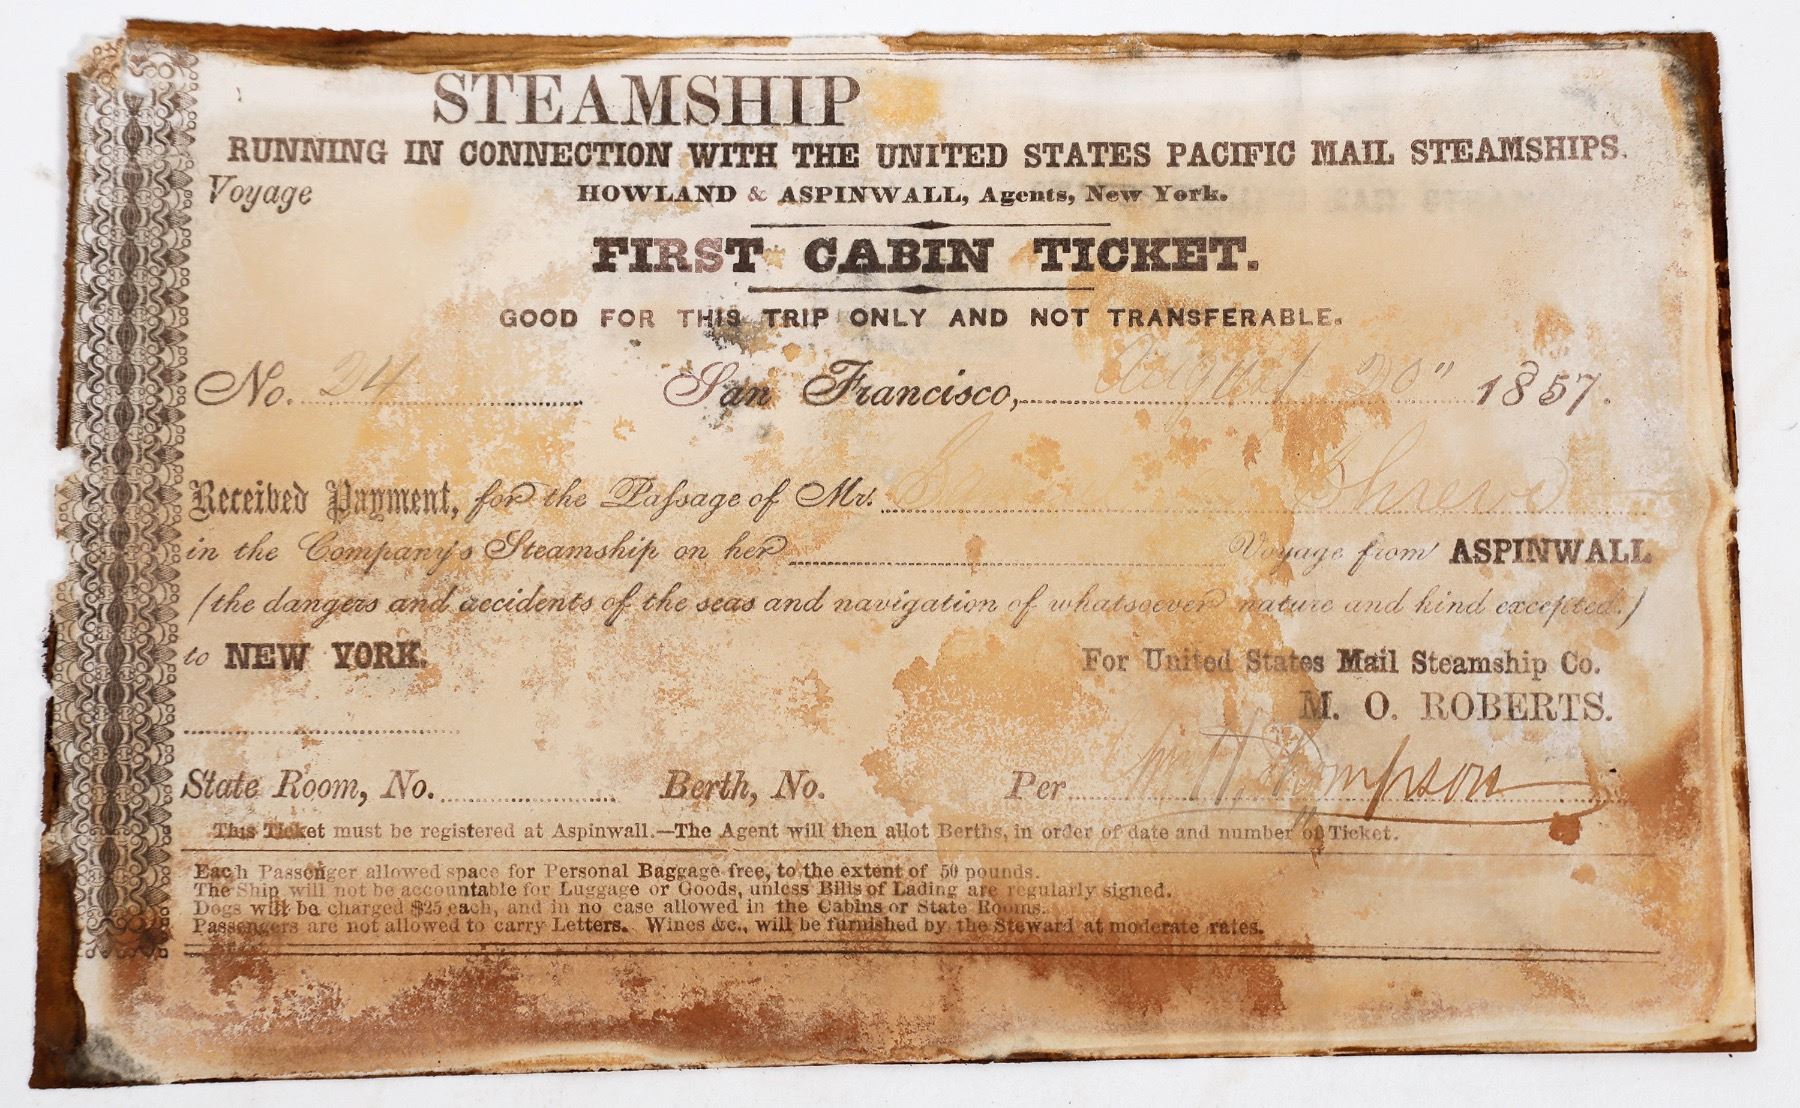 STEAMSHIP
RUNNING IN CONNECTION WITH THE UNITED STATES PACIFIC MAIL STEAMSHIPS.
Voyage HOWLAND & ASPINWALL, Agents, New York.
FIRST CABIN TICKET.
GOOD FOR THIS TRIP ONLY AND NOT TRANSFERABLE.
No. 24 San Francisco, August 20" 1857.
Received Payment, for the Passage of Mr. Shreve
in the Company's Steamship on her Voyage from ASPINWALL
(the dangers and accidents of the seas and navigation of whatsoever nature and kind excepted.)
to NEW YORK. For United States Mail Steamship Co.
M. O. ROBERTS.
State Room, No. Berth, No. Per Thompson
This Ticket must be registered at Aspinwall.—The Agent will then allot Berths, in order of date and number of Ticket.
Each Passenger allowed space for Personal Baggage free, to the extent of 50 pounds.
The Ship will not be accountable for Luggage or Goods, unless Bills of Lading are regularly signed.
Dogs will be charged $25 each, and in no case allowed in the Cabins or State Rooms.
Passengers are not allowed to carry Letters. Wines &c., will be furnished by the Steward at moderate rates.